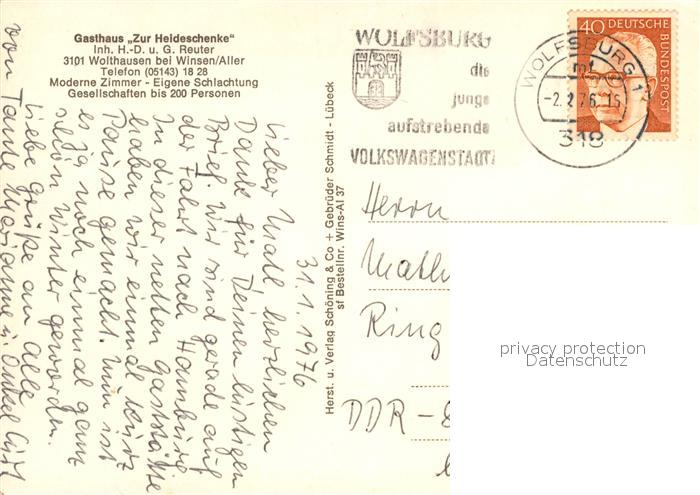 Gasthaus „Zur Heideschenke"
Inh. H.-D. u. G. Reuter
3101 Wolthausen bei Winsen/Aller
Telefon (05143) 18 28
Moderne Zimmer - Eigene Schlachtung
Gesellschaften bis 200 Personen
31.1.1976
Lieber Math herzlichen
Dank für Deinen lustigen
Brief. Wir sind gerade auf
der Fahrt nach Hamburg
In dieser netten Gaststätte
haben wir einmal kurz
Pause gemacht. Nun ist
es ja noch einmal ganz
schön Winter geworden.
Liebe Grüße an alle
von Tante Marianne u. Onkel
Herst. u. Verlag Schöning & Co + Gebrüder Schmidt - Lübeck
sf Bestellnr. Wins-Al 37
WOLFSBURG
die
junge
aufstrebende
VOLKSWAGENSTADT
WOLFSBURG 1
mf
-2.2.76.15
318
40 DEUTSCHE
BUNDESPOST
Herrn
Math
Ring
DDR -
privacy protection
Datenschutz